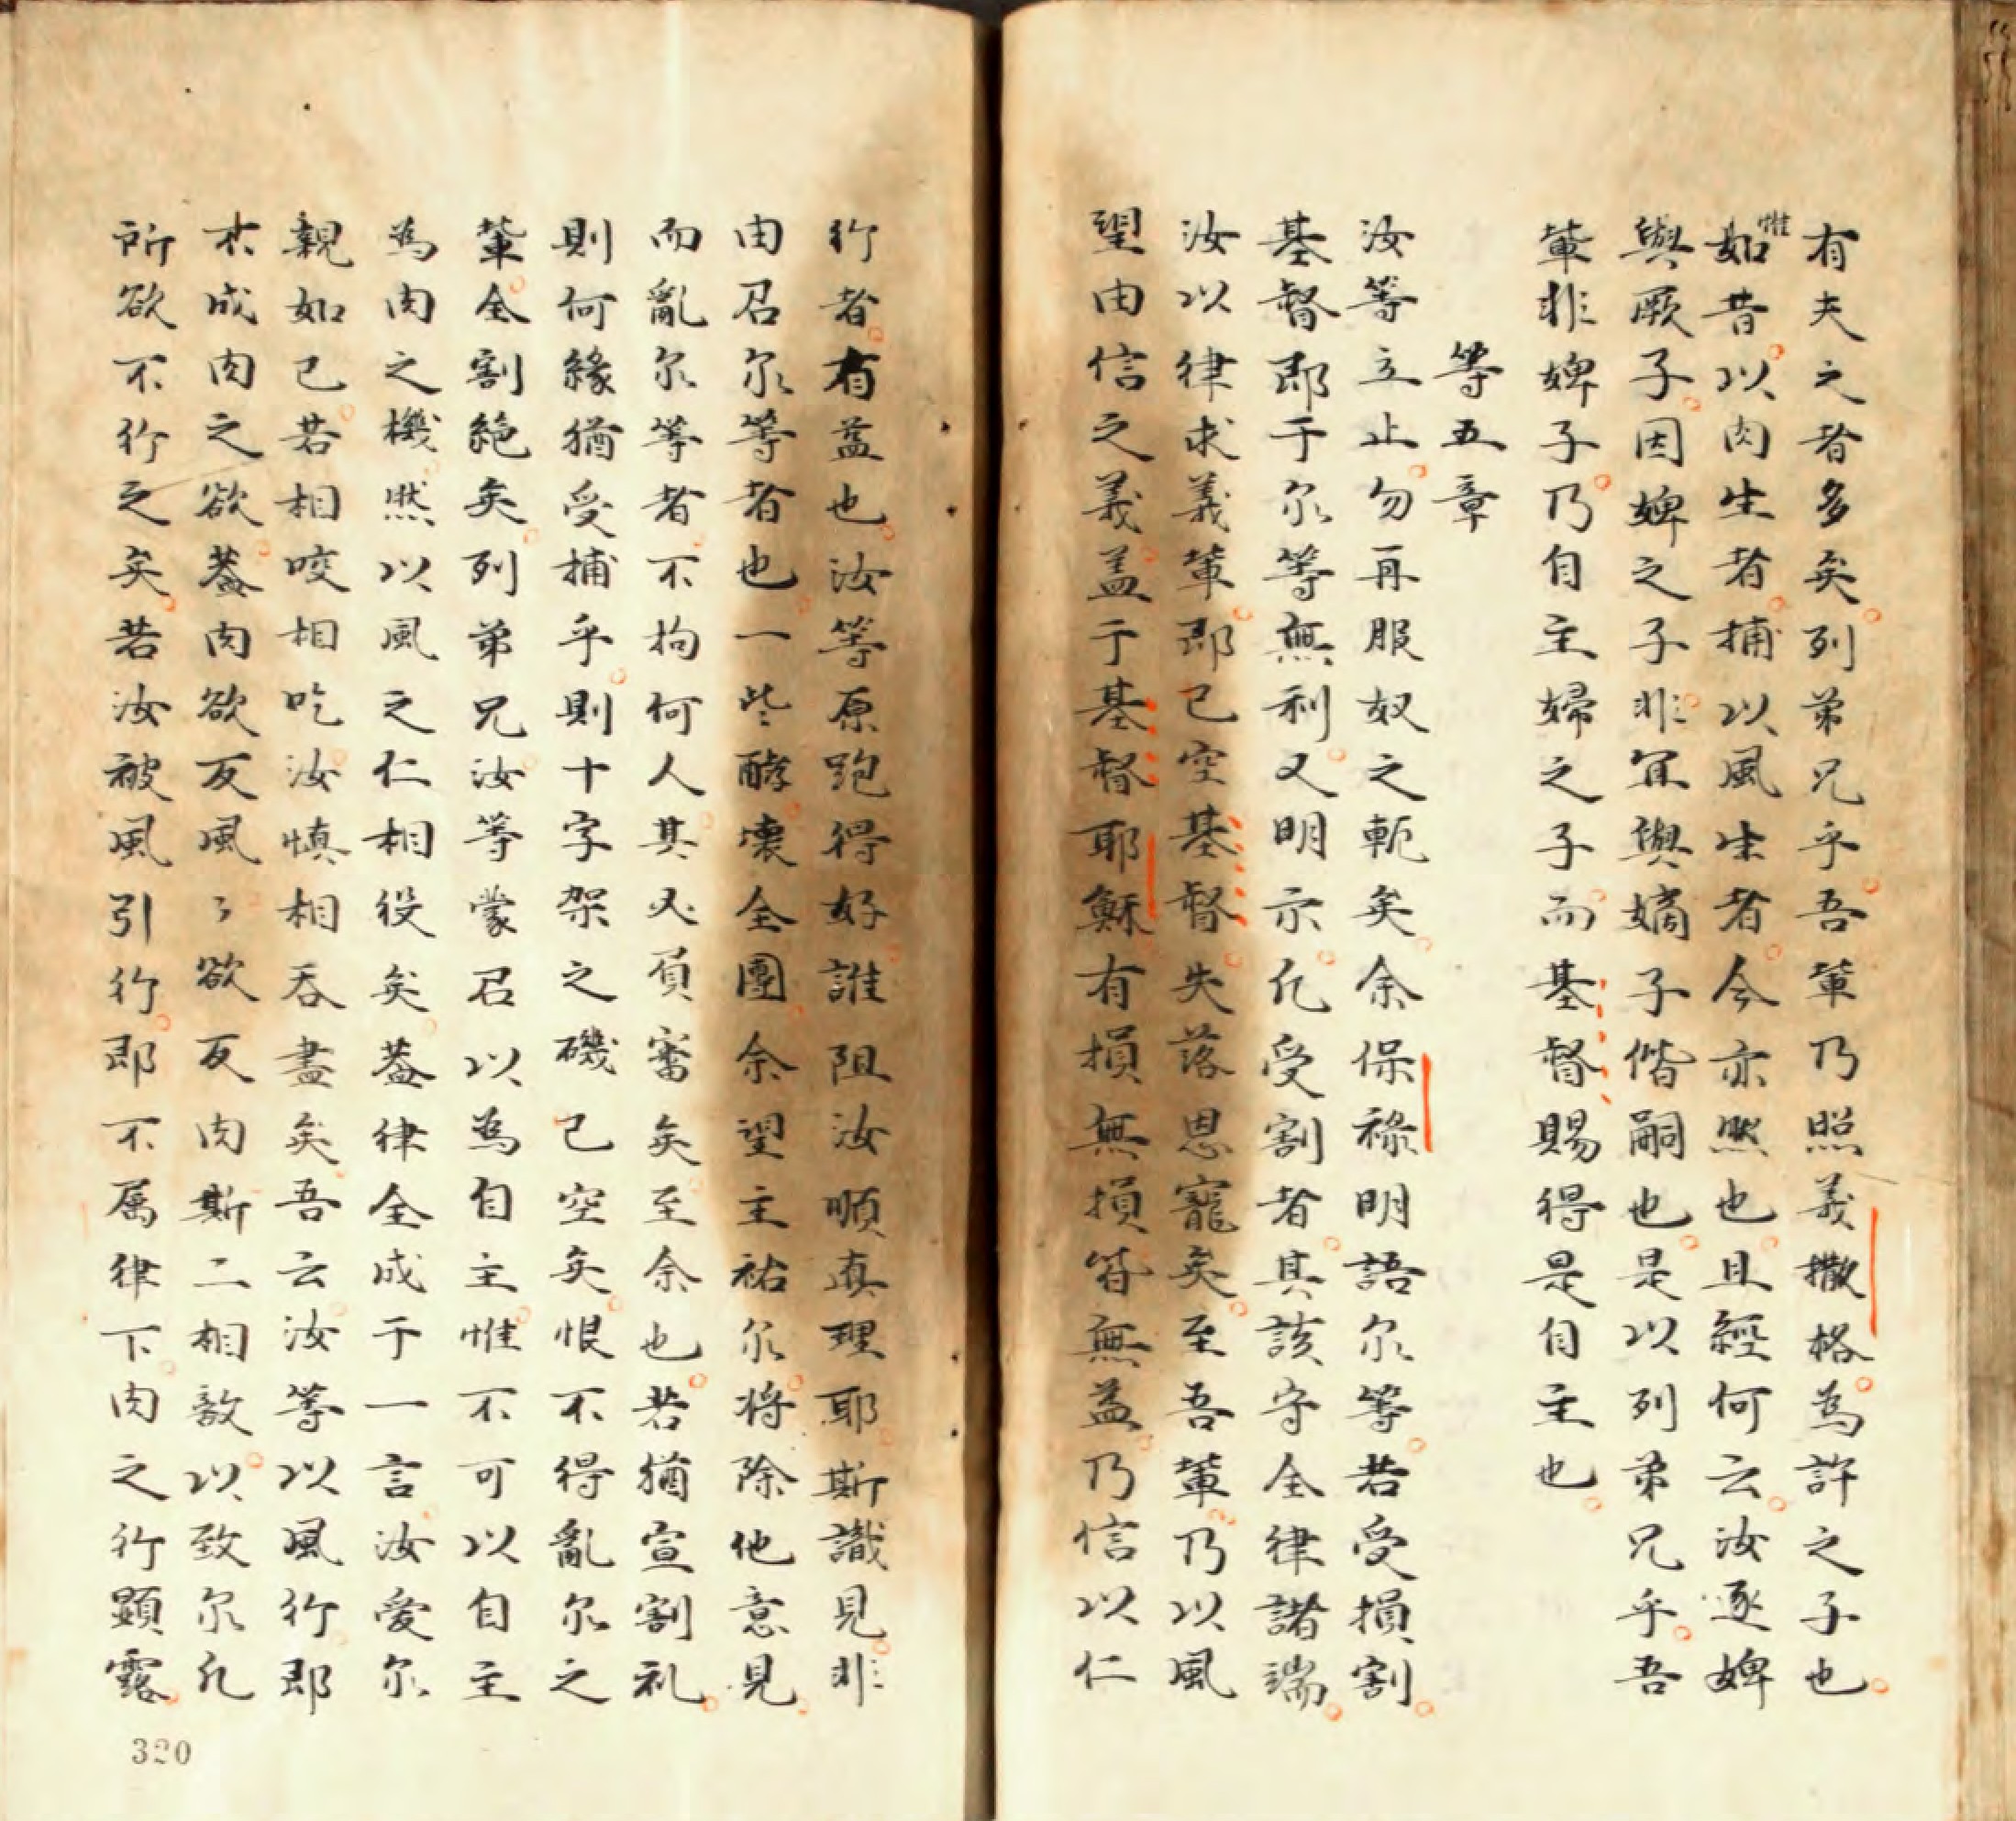 有夫之者多矣列弟兄乎吾軰乃照義撒格為許之子也
惟
如昔以肉生者捕以風生者今亦然也且經何云汝逐婢
與厥子因婢之子非冝與嫡子偕嗣也是以列弟兄乎吾
軰非婢子乃自主婦之子而基督賜得是自主也
等五章
汝等立止勿再服奴之軛矣余保祿明語尔等若受損割
基督即于尔等無利又明示凢受割者其該守全律諸端
汝以律求義軰即已空基督失落恩寵矣至吾軰乃以風
望由信之義盖于基督耶穌有損無損皆無益乃信以仁
行者有益也汝等原跑得好誰阻汝順真理耶斯識見非
由召尔等者也一些酵壞全團余望主祐尔将除他意見
而亂尔等者不拘何人其必負審矣至余也若猶宣割礼
則何緣猶受捕乎則十字架之磯已空矣恨不得亂尔之
軰全割絶矣列弟兄汝等蒙召以為自主惟不可以自主
為肉之機然以風之仁相役矣盖律全成于一言汝愛尔
親如己若相咬相吃汝慎相吞盡矣吾云汝等以風行即
不成肉之欲盖肉欲反風〻欲反肉斯二相敵以致尔凢
所欲不行之矣若汝被風引行即不属律下肉之行顕露
320